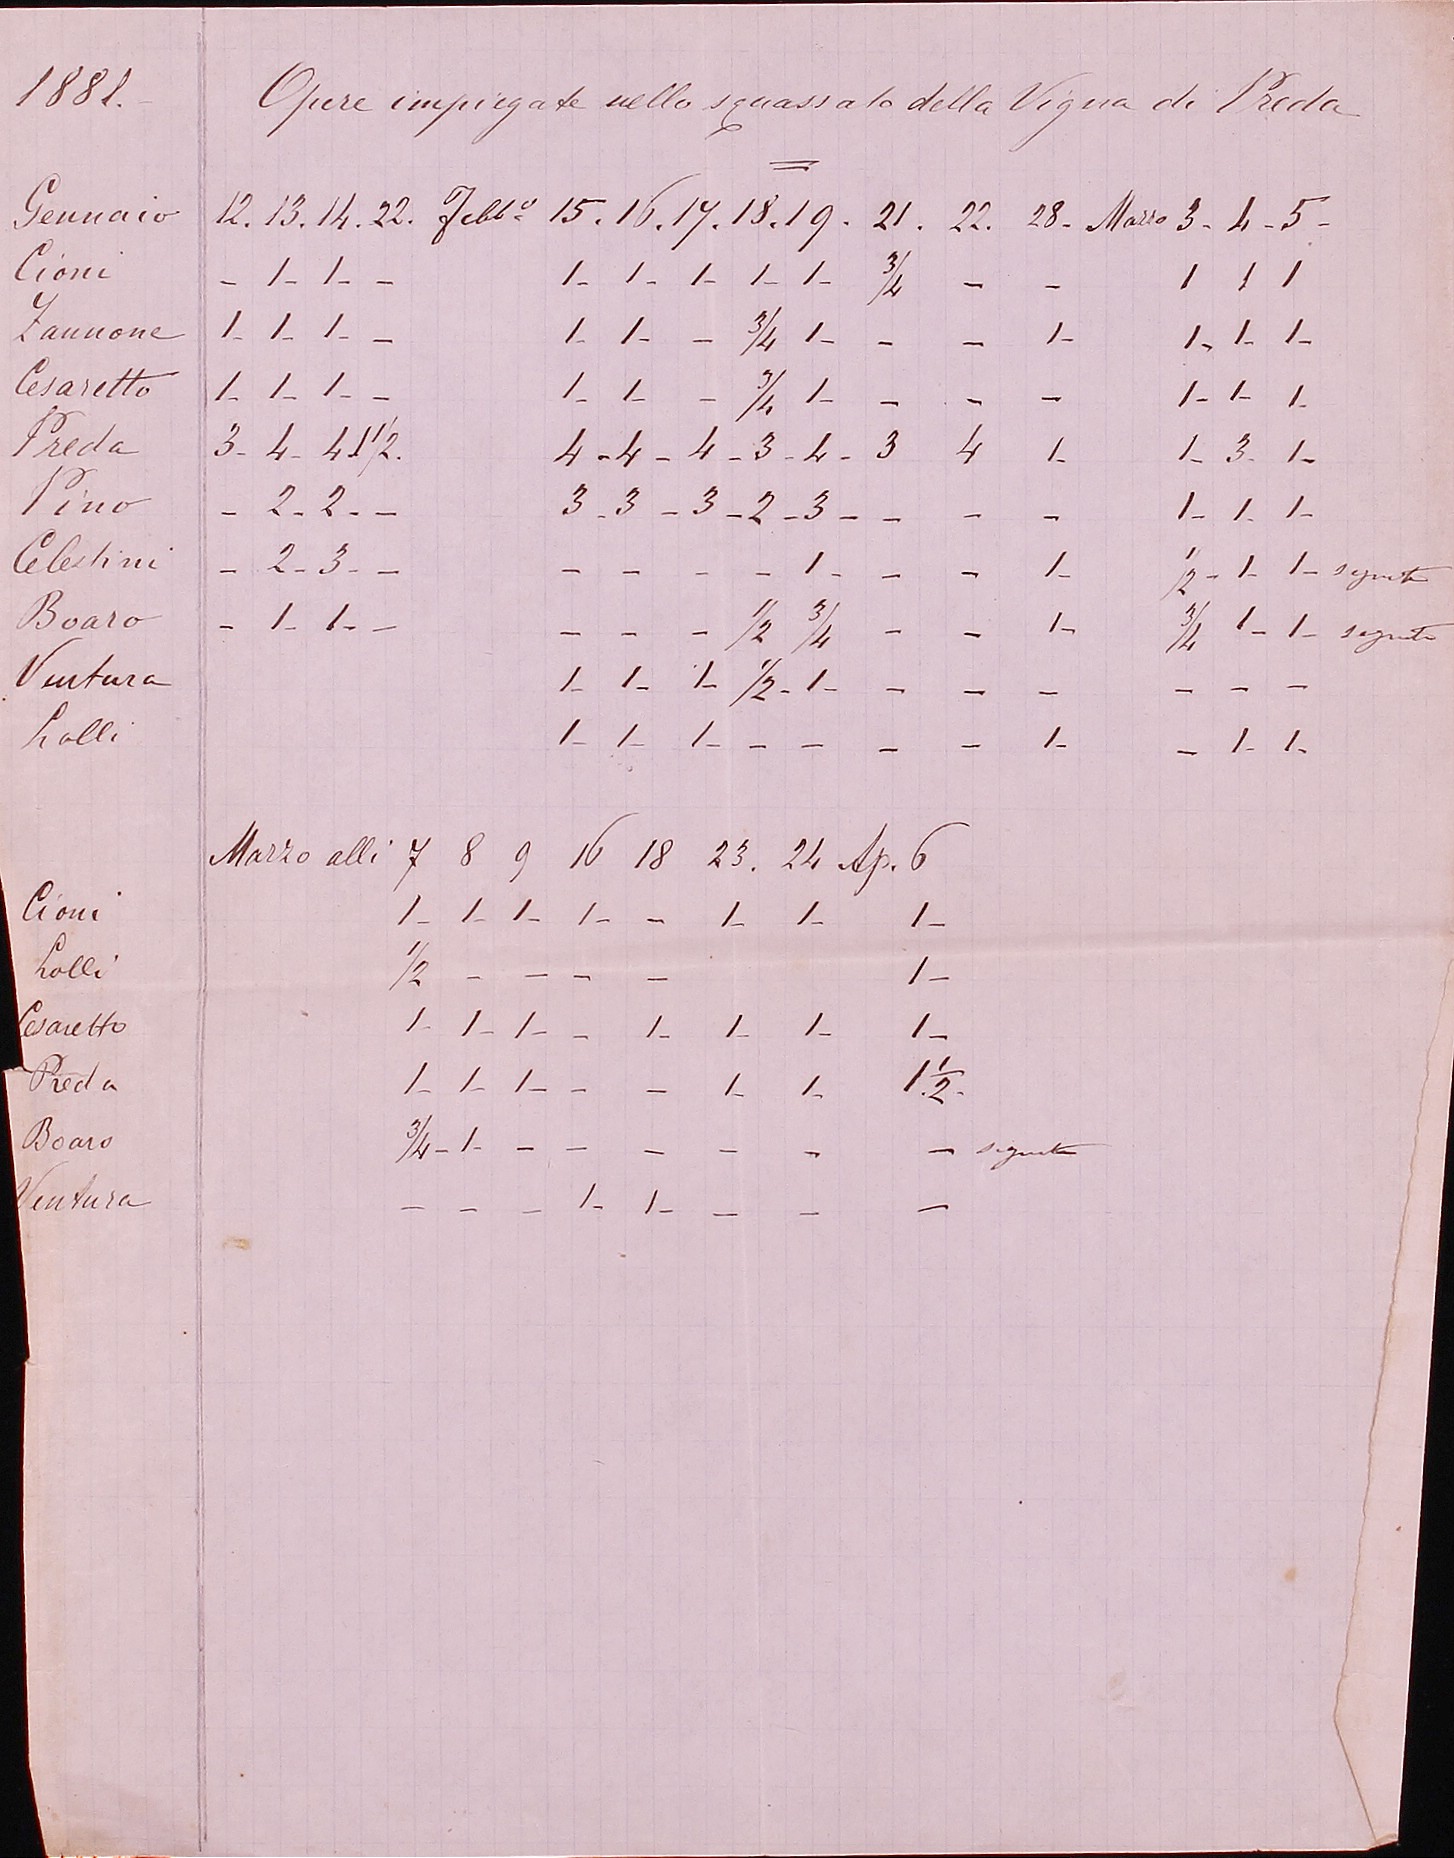 1881. Opere impiegate nello squassato della Vigna di Preda
Gennaio 12. 13. 14. 22. Febb.o 15. 16. 17. 18. 19. 21. 22. 28- Marzo 3- 4- 5-
Cioni - 1- 1- - 1- 1- 1- 1- 1- 3/4 - - 1 1 1
Zannone 1- 1- 1- - 1- 1- - 3/4 1- - - 1- 1- 1- 1-
Cesaretto 1- 1- 1- - 1- 1- - 3/4 1- - - - 1- 1- 1-
Preda 3- 4- 4 1 1/2. 4- 4- 4- 3- 4- 3 4 1- 1- 3- 1-
Pino - 2- 2- - 3- 3- 3- 2- 3- - - - 1- 1- 1-
Celestini - 2- 3- - - - - - 1- - - 1- 1/2- 1- 1-
Boaro - 1- 1- - - - - 1/2 3/4 - - 1- 3/4 1- 1-
Ventura 1- 1- 1- 1/2- 1- - - - - - -
Lolli 1- 1- 1- - - - - 1- - 1- 1-
Marzo alli 7 8 9 16 18 23. 24 Ap. 6
Cioni 1- 1- 1- 1- - 1- 1- 1-
Lolli 1/2 - - - - 1-
Cesaretto 1- 1- 1- - 1- 1- 1- 1-
Preda 1- 1- 1- - - 1- 1- 1 1/2-
Boaro 3/4- 1- - - - - - -
Ventura - - - 1- 1- - - -